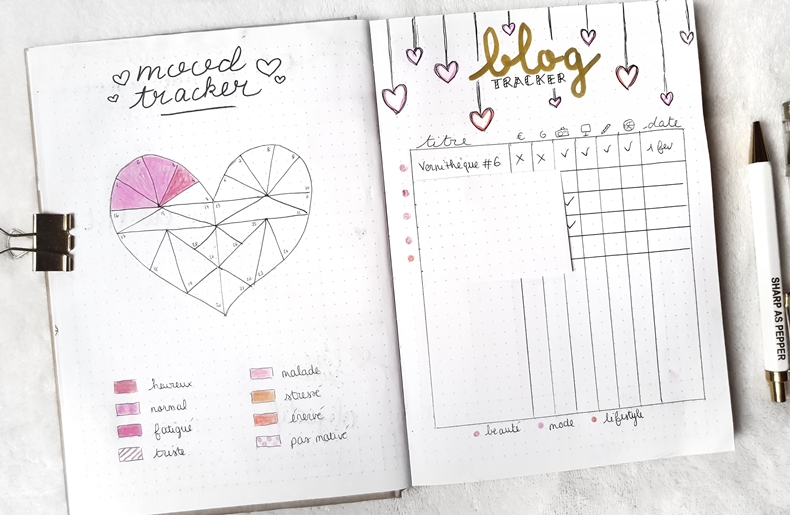 mood
tracker
heureux
normal
fatigué
triste
malade
stressé
énervé
pas motivé
blog
TRACKER
titre € G date
Vernithèque #6 x x ✓ ✓ ✓ ✓ 1 fev
✓
✓
beauté mode lifestyle
SHARP AS PEPPER